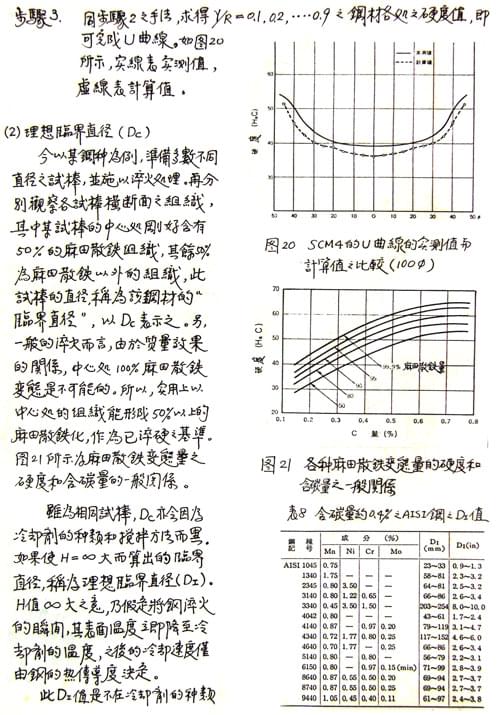 步驟3. 同步驟2之手法,求得 γ/R=0.1, 0.2, ‥‥0.9 之鋼材各処之硬度值,即
可完成U曲線。如图20
所示,实線表实測值,
虛線表計算值。
(2) 理想臨界直徑 (Dc)
今以某鋼种為例,準備多數不同
直徑之試棒,並施以淬火処理。再分
別觀察各試棒橫断面之組織,
其中某試棒的中心処剛好含有
50%的麻田散鉄組織,其餘50%
為麻田散鉄以外的組織,此
試棒的直徑稱為該鋼材的"
臨界直徑",以Dc表示之。另,
一般的淬火而言,由於質量效果
的関係,中心処100%麻田散鉄
变態是不可能的。所以,实用上以
中心処的組織能形成50%以上的
麻田散鉄化,作為已淬硬之基準。
图21所示為麻田散鉄变態量之
硬度和含碳量的一般関係。
雖為相同試棒,Dc亦今因為
冷却劑的种類和搅拌方法而異。
如果使H=∞大而算出的臨界
直徑,稱為理想臨界直徑(DI)。
H值∞大之意,乃假定將鋼淬火
的瞬間,其表面溫度立即降至冷
却劑的溫度,之後的冷却速度僅
由鋼的热傳導度決定。
此DI值是不在冷却劑的种類
实測值
計算值
硬度 (HRC)
60
50
40
30
20
50 40 30 20 10 0 10 20 30 40 50
图20 SCM4的U曲線的实測值与
計算值之比較(100φ)
硬度 (HRC)
70
60
50
40
30
20
99.9% 麻田散鉄量
95
90
80
50
0.1 0.2 0.3 0.4 0.5 0.6 0.7 0.8
C 量 (%)
图21 各种麻田散鉄变態量的硬度和
含碳量之一般関係
表8 含碳量約0.4%之AISI鋼之DI值
鋼種記号 成分 (%) DI (mm) DI (in)
Mn Ni Cr Mo
AISI 1045 0.75 23~33 0.9~1.3
1340 1.75 — — — 58~81 2.3~3.2
2345 0.80 3.50 — — 64~81 2.5~3.2
3140 0.80 1.22 0.65 — 66~86 2.6~3.4
3340 0.45 3.50 1.50 — 203~254 8.0~10.0
4042 0.80 — — 43~61 1.7~2.4
4140 0.87 — 0.97 0.20 79~119 3.1~4.7
4340 0.72 1.77 0.80 0.25 117~152 4.6~6.0
4640 0.70 1.77 — 0.25 66~86 2.6~3.4
5140 0.80 — 0.80 — 56~79 2.2~3.1
6150 0.80 — 0.97 0.15 (min) 71~99 2.8~3.9
8640 0.87 0.55 0.50 0.20 69~94 2.7~3.7
8740 0.87 0.55 0.50 0.25 69~94 2.7~3.7
9440 1.05 0.45 0.40 0.11 61~97 2.4~3.8